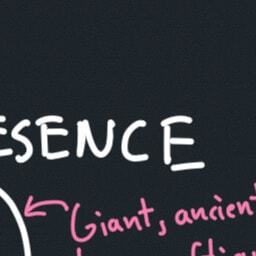 ESENCE
Giant, ancient